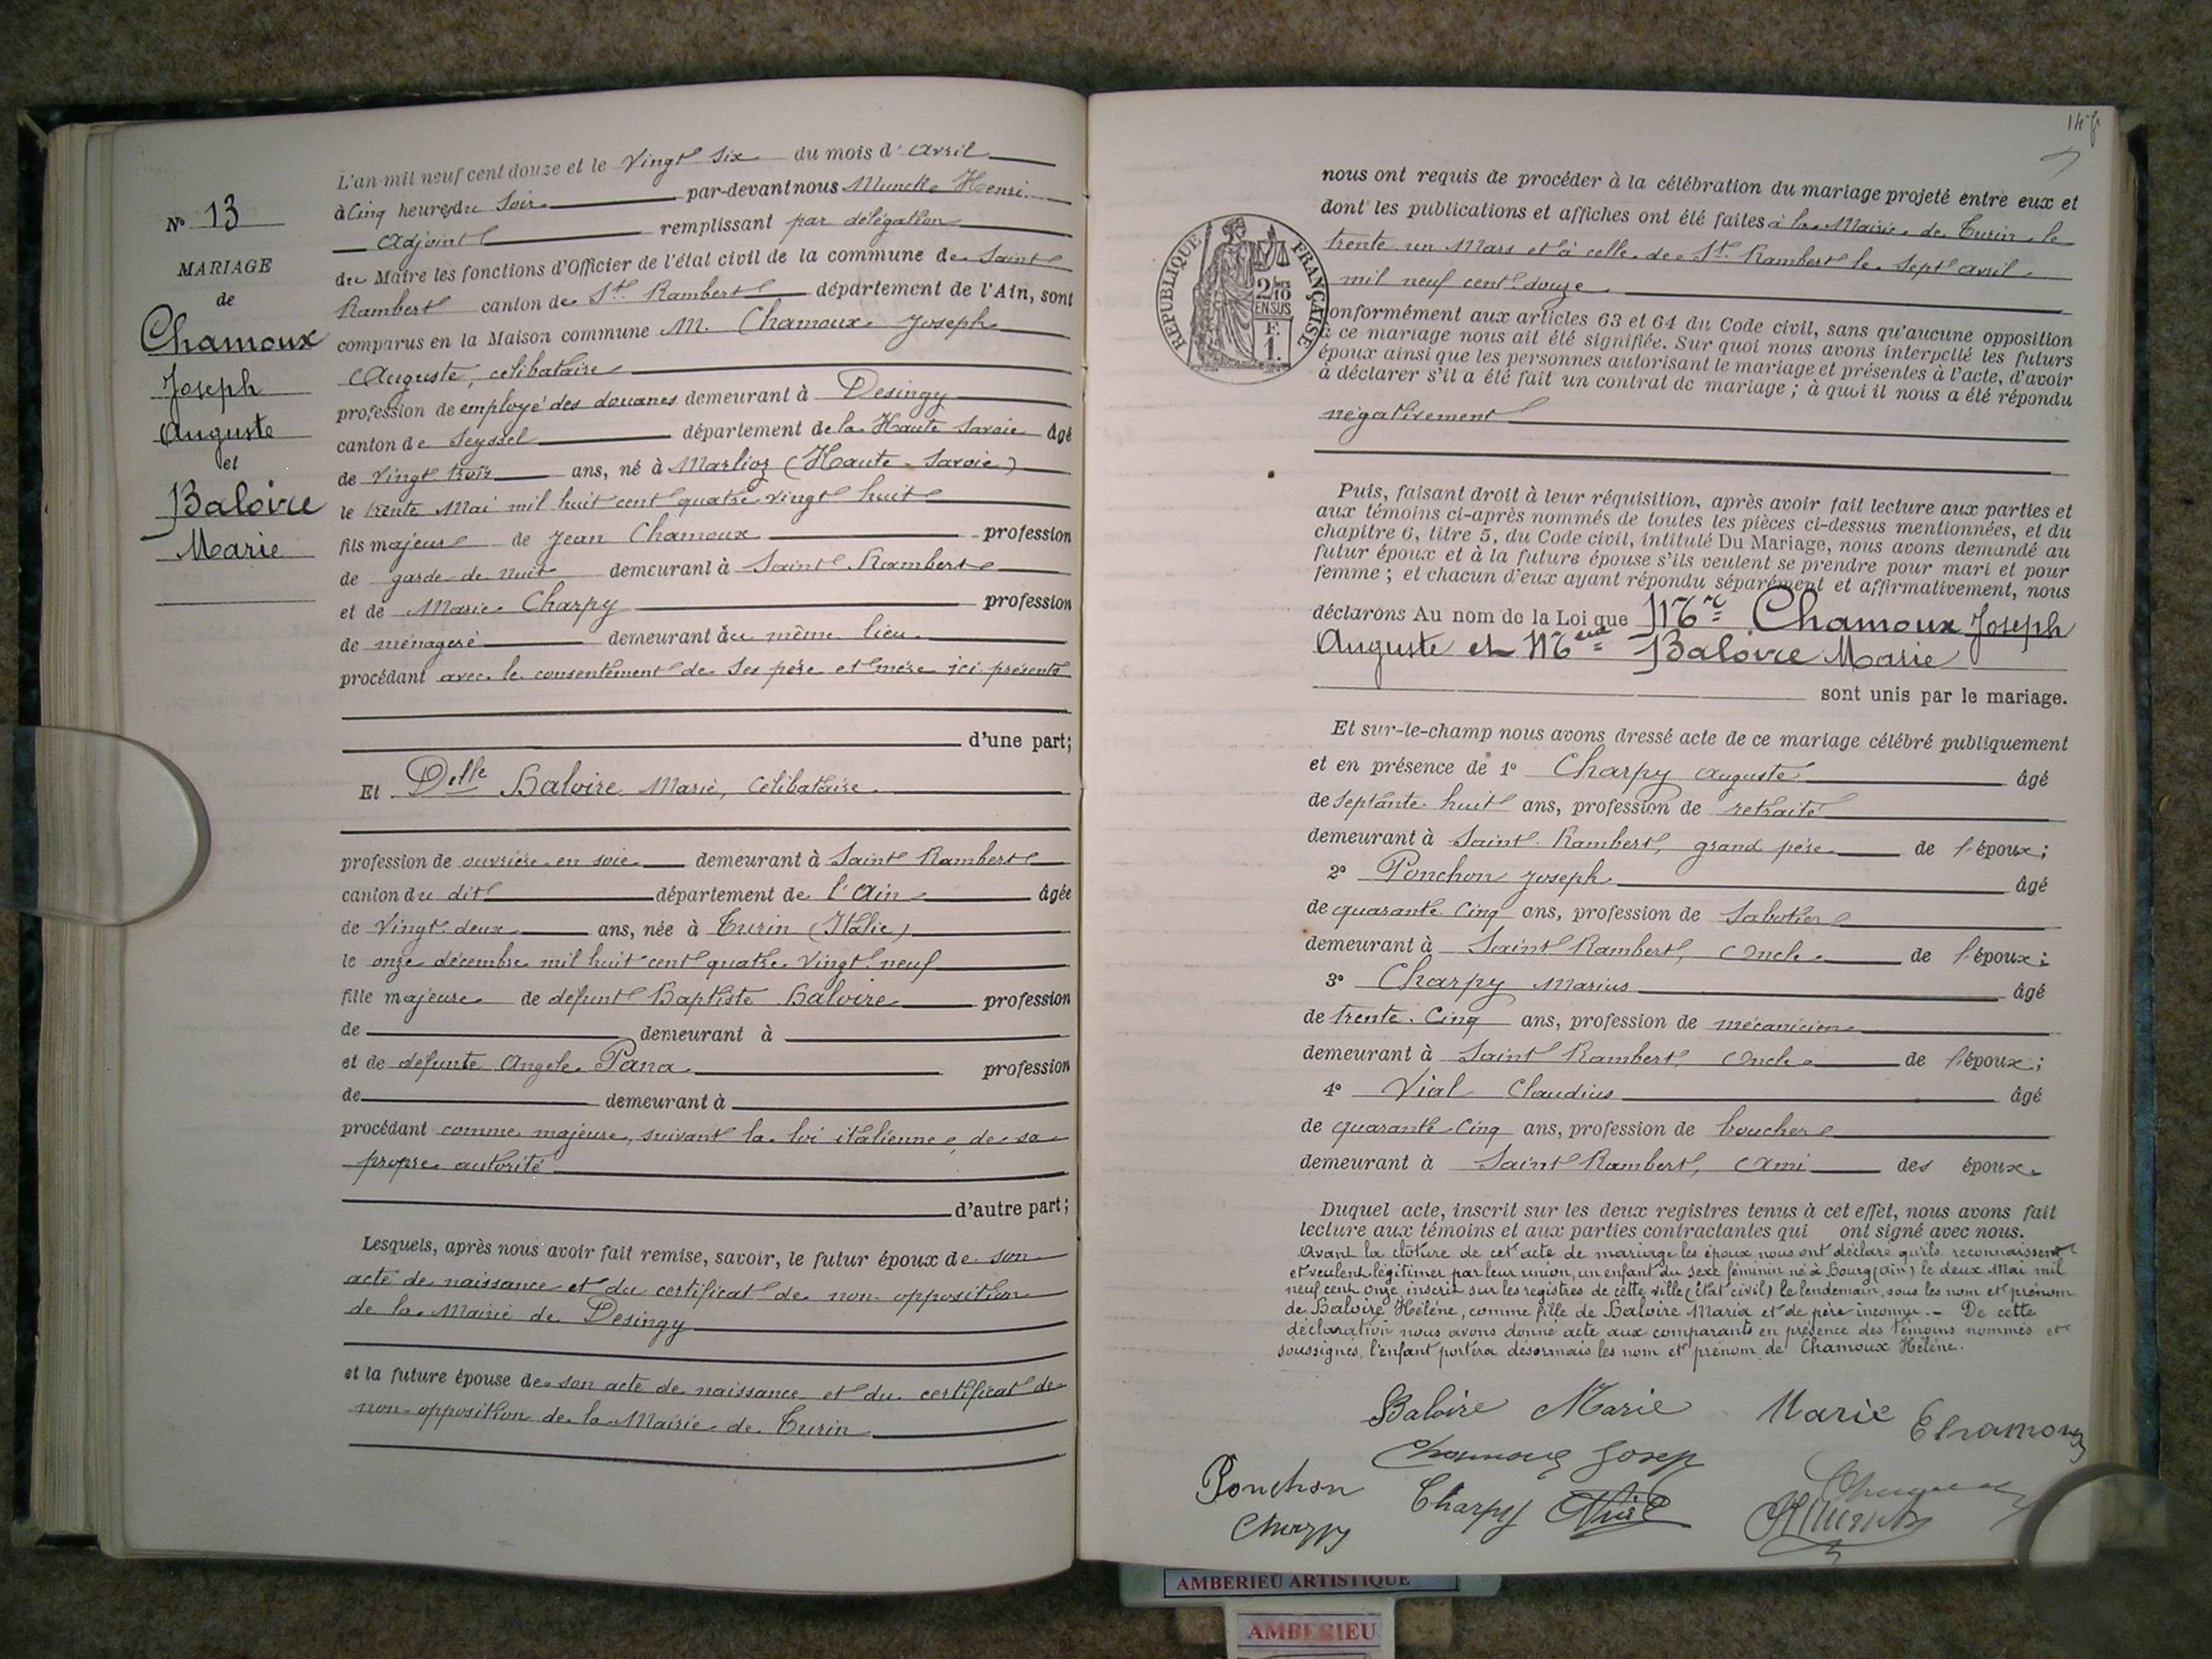 N° 13
MARIAGE
de
Chamoux
Joseph
Auguste
et
Baloire
Marie
L'an mil neuf cent douze et le vingt six du mois d'avril
à cinq heures du soir par-devant nous Henri
adjoint remplissant par délégation
du Maire les fonctions d'Officier de l'état civil de la commune de Saint
Rambert canton de St Rambert département de l'Ain, sont
comparus en la Maison commune M. Chamoux Joseph
Auguste, célibataire
profession de employé des douanes demeurant à Desingy
canton de Seyssel département de la Haute Savoie âgé
de vingt trois ans, né à Marlioz (Haute-Savoie)
le trente Mai mil huit cent quatre vingt huit
fils majeur de Jean Chamoux profession
de garde de nuit demeurant à Saint Rambert
et de Marie Charpy profession
de ménagère demeurant au même lieu
procédant avec le consentement de ses père et mère ici présents
d'une part;
Et Delle Baloire Marie, célibataire
profession de ouvrière en soie demeurant à Saint Rambert
canton du dit département de l'Ain âgée
de vingt-deux ans, née à Turin (Italie)
le onze décembre mil huit cent quatre vingt neuf
fille majeure de défunt Baptiste Baloire profession
de demeurant à
et de défunte Angele Pana profession
de demeurant à
procédant comme majeure, suivant la loi italienne, de sa
propre autorité
d'autre part;
Lesquels, après nous avoir fait remise, savoir, le futur époux de son
acte de naissance et du certificat de non-opposition
de la Mairie de Desingy
et la future épouse de son acte de naissance et du certificat de
non-opposition de la Mairie de Turin
nous ont requis de procéder à la célébration du mariage projeté entre eux et
dont les publications et affiches ont été faites à la Mairie de Turin le
trente un Mars et à celle de St Rambert le sept avril
mil neuf cent douze
RÉPUBLIQUE FRANÇAISE
2/10
EN SUS
F.
1.
conformément aux articles 63 et 64 du Code civil, sans qu'aucune opposition
à ce mariage nous ait été signifiée. Sur quoi nous avons interpellé les futurs
époux ainsi que les personnes autorisant le mariage et présentes à l'acte, d'avoir
à déclarer s'il a été fait un contrat de mariage; à quoi il nous a été répondu
négativement
Puis, faisant droit à leur réquisition, après avoir fait lecture aux parties et
aux témoins ci-après nommés de toutes les pièces ci-dessus mentionnées, et du
chapitre 6, titre 5, du Code civil, intitulé Du Mariage, nous avons demandé au
futur époux et à la future épouse s'ils veulent se prendre pour mari et pour
femme; et chacun d'eux ayant répondu séparément et affirmativement, nous
déclarons Au nom de la Loi que Mr Chamoux Joseph
Auguste et Melle Baloire Marie
sont unis par le mariage.
Et sur-le-champ nous avons dressé acte de ce mariage célébré publiquement
et en présence de 1° Charpy Auguste âgé
de septante huit ans, profession de retraité
demeurant à Saint-Rambert, grand père de l'époux;
2° Ponchon Joseph âgé
de quarante cinq ans, profession de sabotier
demeurant à Saint Rambert, oncle de l'époux;
3° Charpy Marius âgé
de trente-cinq ans, profession de mécanicien
demeurant à Saint Rambert, oncle de l'époux;
4° Vial Claudius âgé
de quarante-cinq ans, profession de boucher
demeurant à Saint Rambert, ami des époux.
Duquel acte, inscrit sur les deux registres tenus à cet effet, nous avons fait
lecture aux témoins et aux parties contractantes qui ont signé avec nous.
Avant la clôture de cet acte de mariage les époux nous ont déclaré qu'ils reconnaissent
et veulent légitimer par leur union, un enfant du sexe féminin né à Bourg (Ain) le deux Mai mil
neuf cent onze, inscrit sur les registres de cette ville (état civil) le lendemain, sous les nom et prénom
de Baloire Hélène, comme fille de Baloire Maria et de père inconnu. - De cette
déclaration nous avons donné acte aux comparants en présence des témoins nommés et
soussignés, l'enfant portera désormais les nom et prénom de Chamoux Hélène.
Baloire Marie Marie Chamoux
Chamoux Josep
Ponchon Charpy Vial
Charpy
AMBERIEU ARTISTIQUE
AMBERIEU